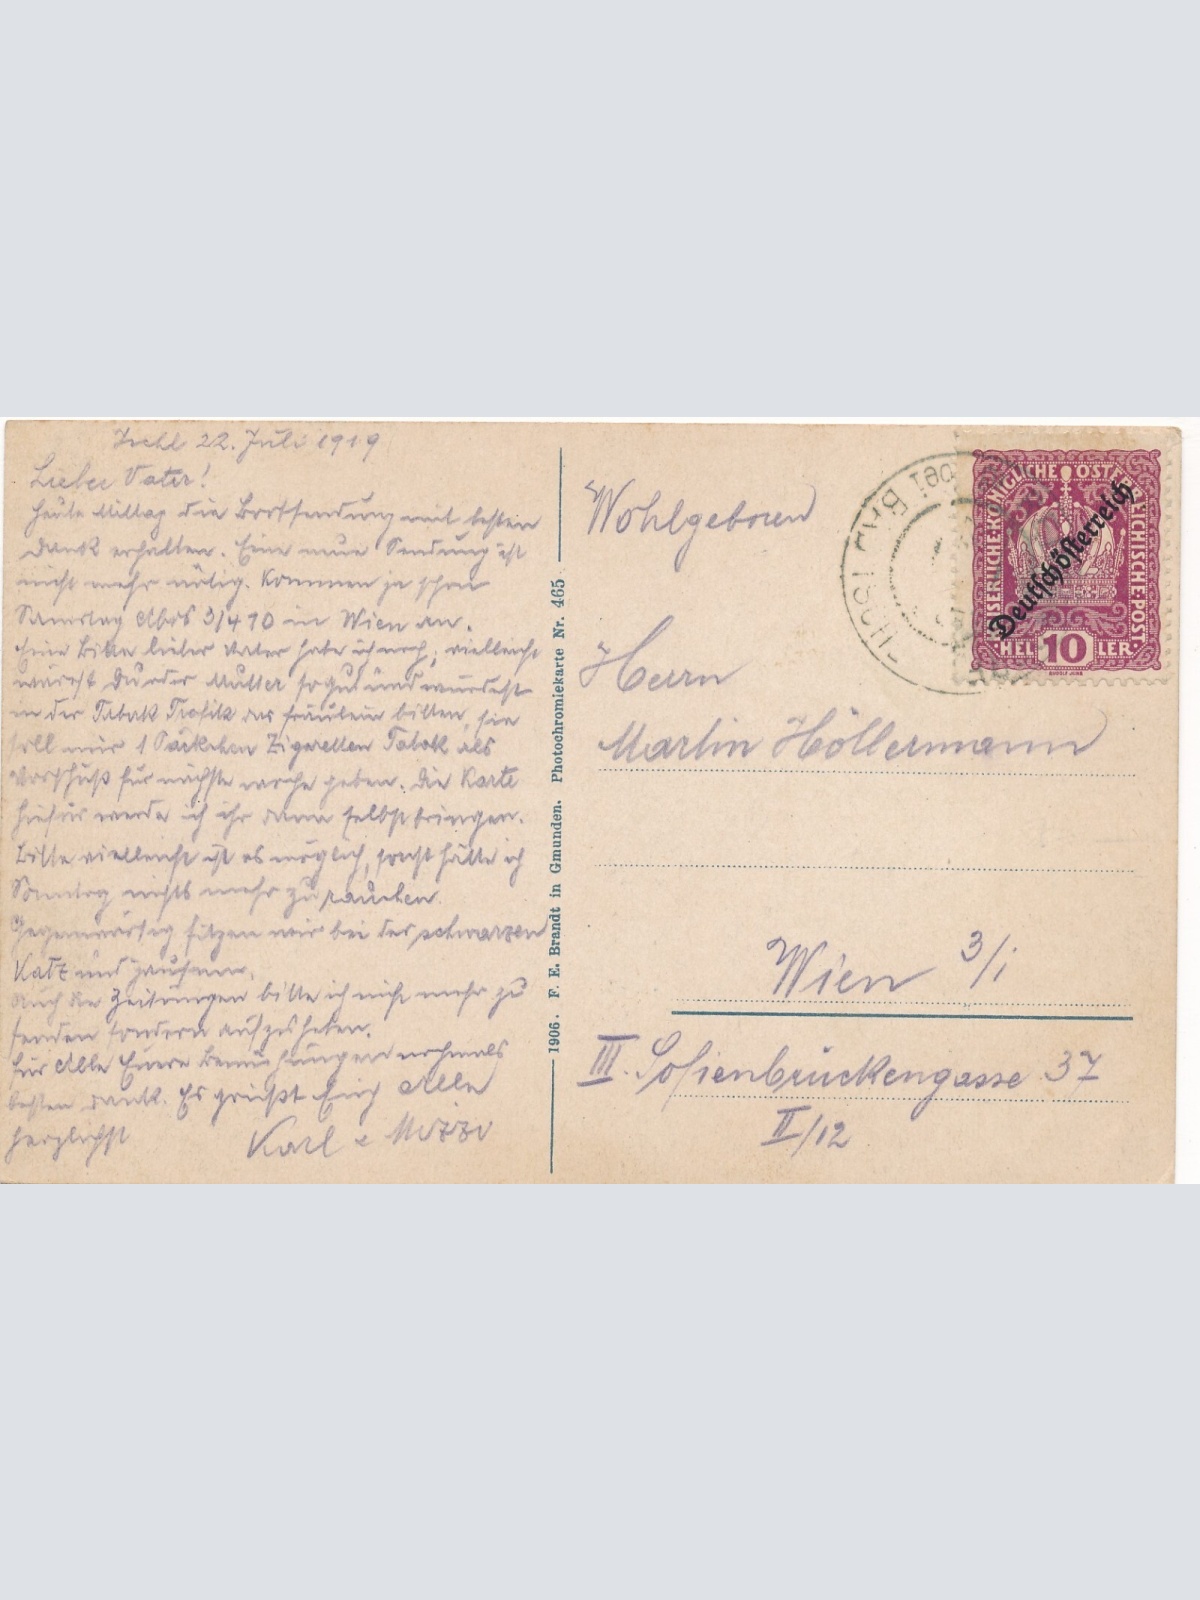 Ischl 22. Juli 1919
Lieber Vater!
Heute Mittag die Brotsendung mit bestem
Dank erhalten. Eine neue Sendung ist
nicht mehr nötig. Kommen ja schon
Samstag Abds 3/4 10 in Wien an.
Eine Bitte lieber Vater habe ich noch; vielleicht
wärest Du oder Mutter so gut und würdest
in der Tabak Trafik das Fräulein bitten, sie
soll mir 1 Päckchen Zigaretten Tabak als
Vorschuß für nächste Woche geben. Die Karte
hiefür werde ich ihr dann selbst bringen.
Bitte vielleicht ist es möglich, sonst hätte ich
Sonntag nichts mehr zu rauchen.
Gegenwärtig sitzen wir bei der schwarzen
Katz und
Auch die Zeitungen bitte ich nicht mehr zu
senden sondern aufzuheben.
Für Alle Euere Bemühungen nochmals
besten Dank. Es grüßt Euch Alle
herzlichst Karl u Mizzi
1906. F. E. Brandt in Gmunden. Photochromiekarte Nr. 465
KAISERLICHE KÖNIGLICHE ÖSTERREICHISCHE POST
Deutschösterreich
HEL 10 LER
BAD ISCHL
Wohlgeboren
Herrn
Martin Höllermann
Wien 3/i
III. Sofienbrückengasse 37
II/12